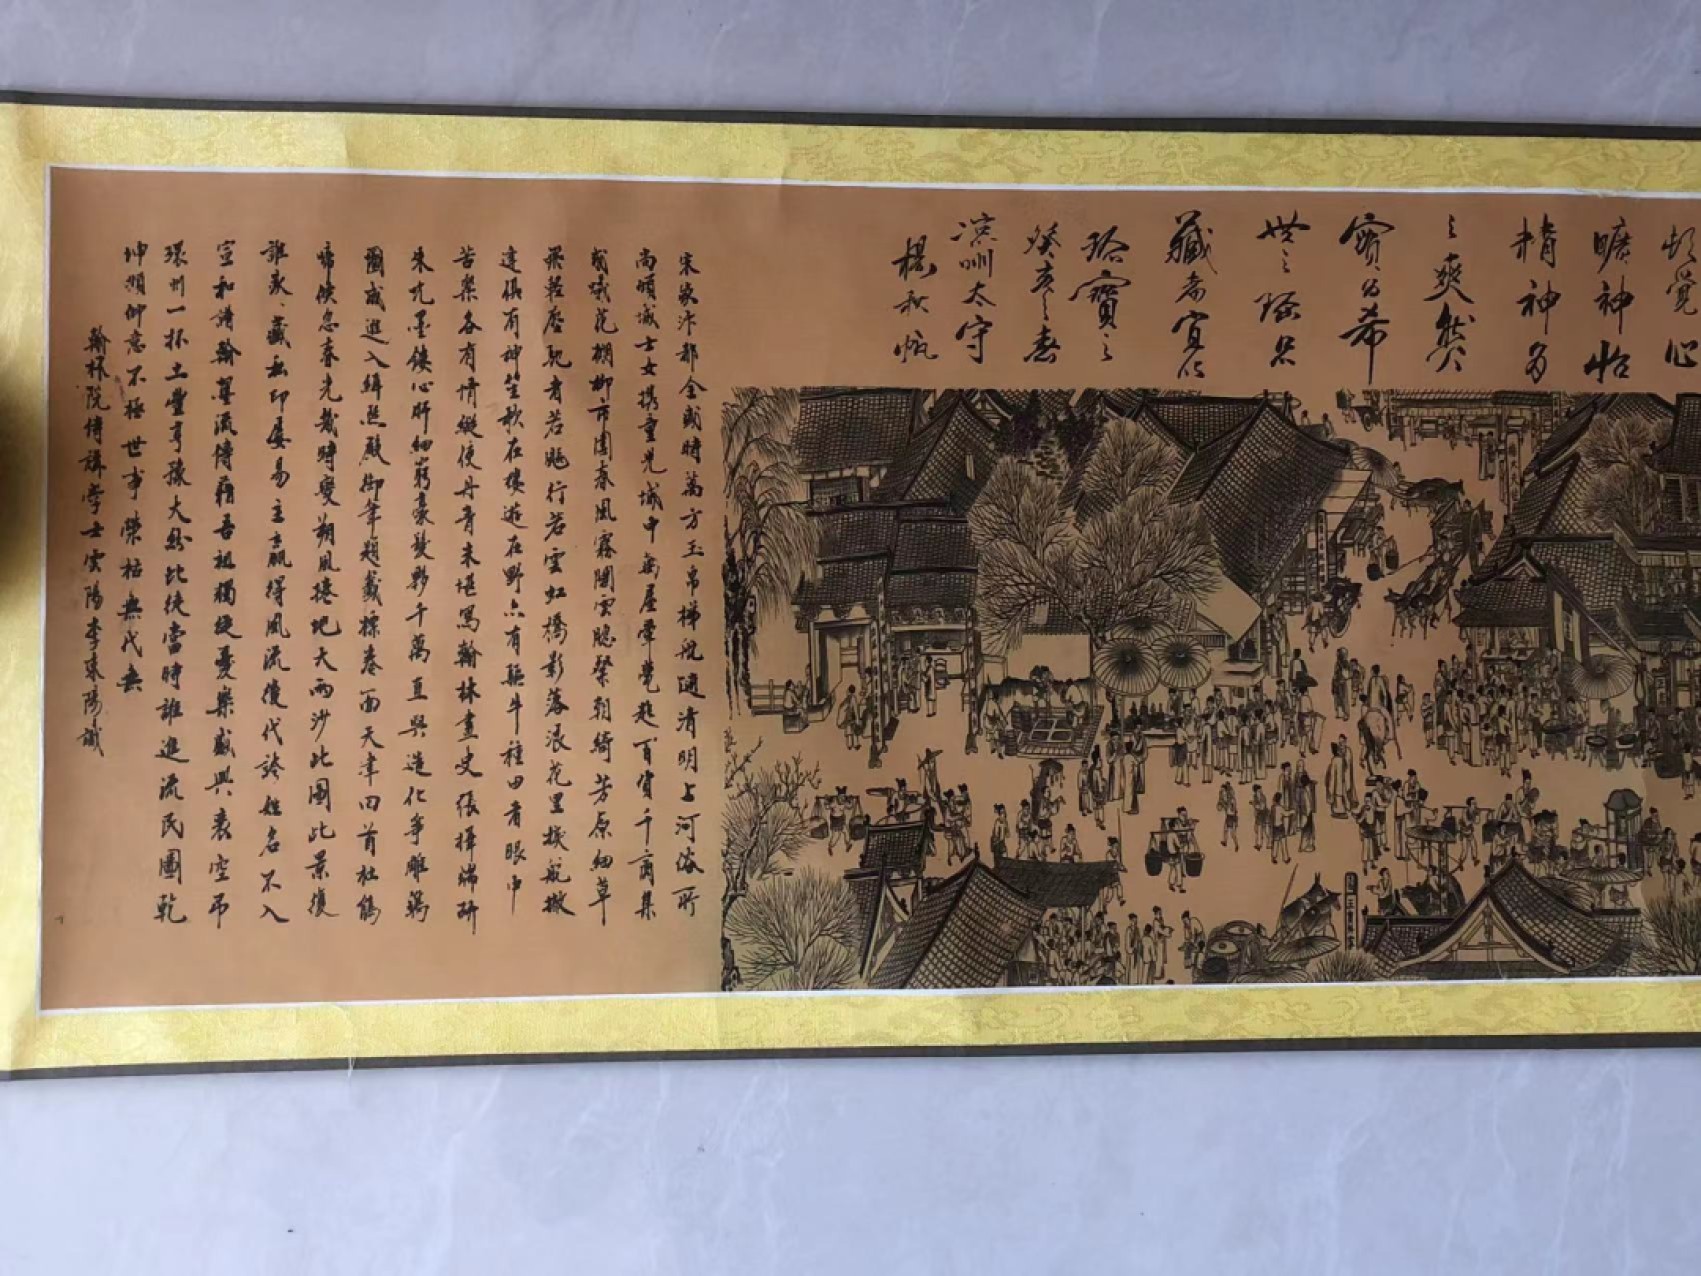 頓覺心
曠神怡
精神為
之爽然
寳公希
世之
藏者宜什
珍寶之
癸亥之春
涼州太守
楊秋帆
宋家汴都全盛時萬方玉帛梯航隨清明上河俗所
尚傾城士女攜童兒城中無屋舉甍起百貨千商集
成蟻花棚柳市圍春風霧閣雲牕粲朝綺芳原細草
飛輕塵馳者若飈行若雲虹橋影落浪花里捩舵撇
逢俱有神笙歌在樓遊在野亦有驅牛種田者眼中
苦樂各有情縱使丹青未堪寫翰林畫史張擇端研
朱吮墨鏤心肝細窮毫髮夥千萬直與造化爭雕鐫
圖成進入緝熙殿御筆題籤標卷面天津回首杜鵑
啼倏忽春光幾時變朔風捲地大雨沙此圖此景復
誰家々藏私印屢易主贏得風流後代誇姓名不入
宣和譜翰墨流傳藉吾祖獨從憂樂感興衰空吊
環州一抔土豐亨豫大紛此徒當時誰進流民圖乾
坤頫仰意不極世事榮枯無代無
翰林院侍講學士雲陽李東陽識